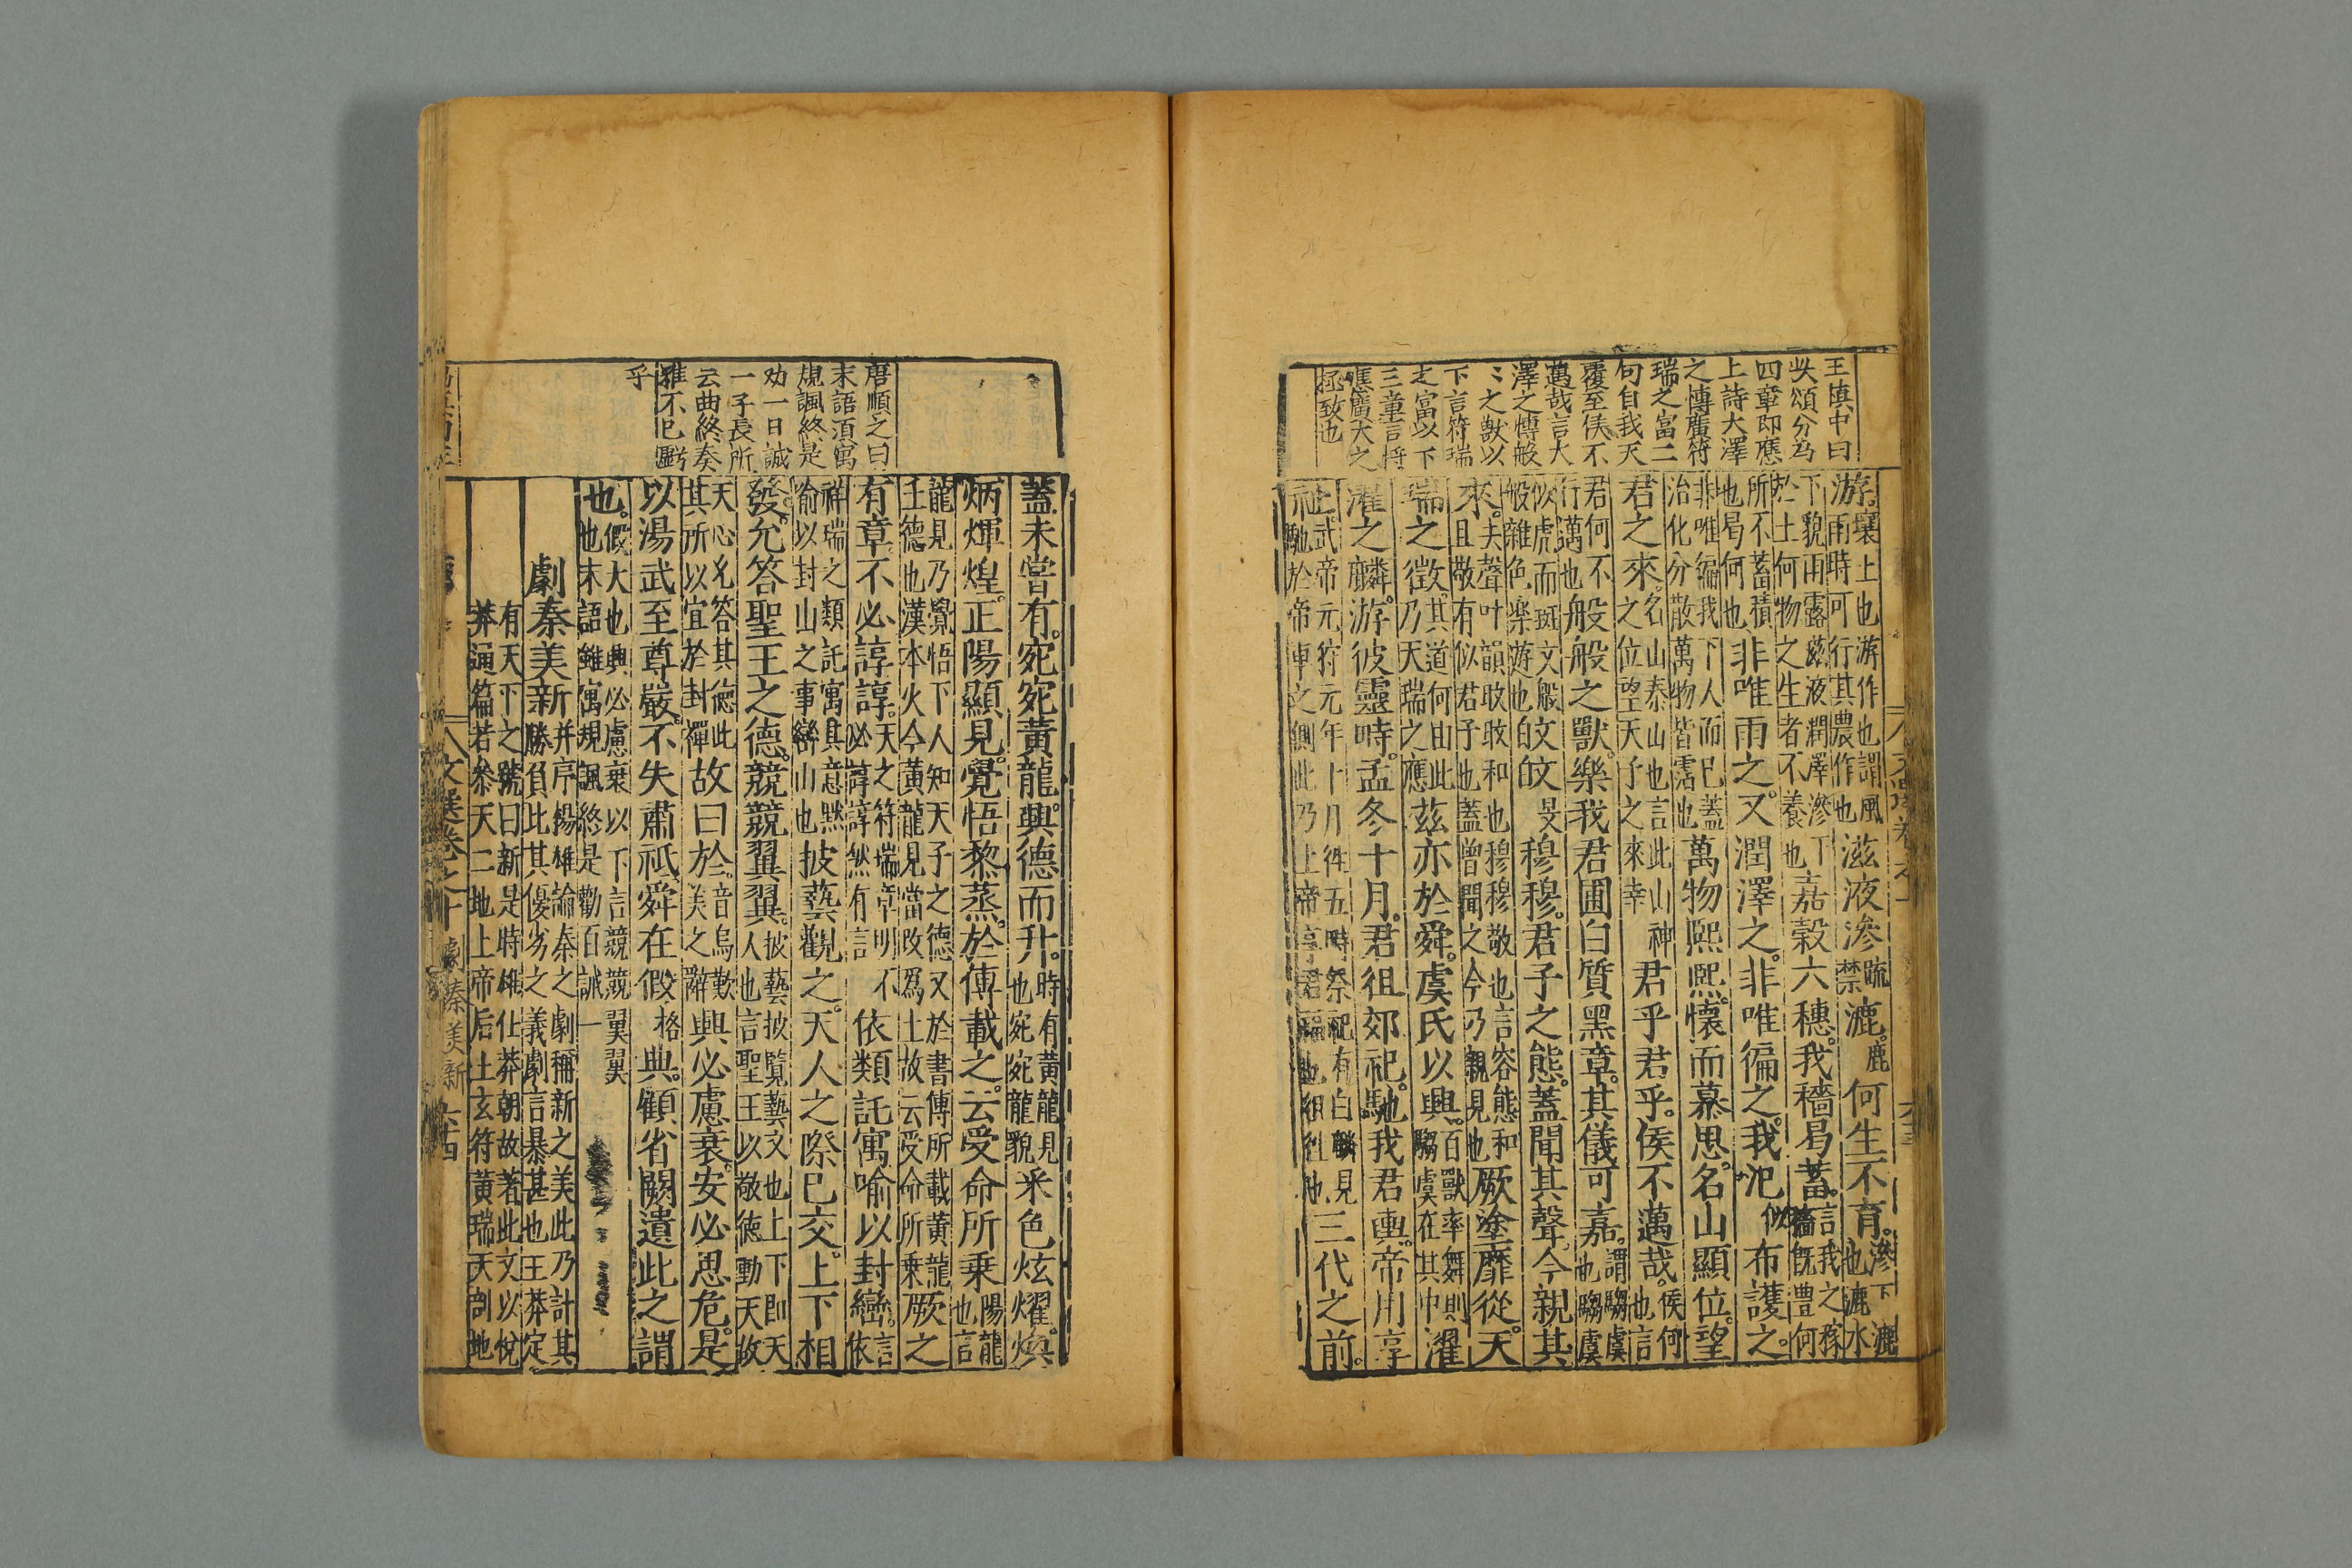 王慎中曰
此頌分為
四章即應
上詩大澤
之博廣符
瑞之富二
句自我天
覆至侯不
邁哉言大
澤之博般
〻之獸以
下言符瑞
之富以下
三章言符
應廣大之
極致也
游壤上也游作也謂風
雨時可行其農作也滋液滲疏禁漉鹿何生不育滲下漉
也漉水
下貌雨露滋液潤澤滲下
於土何物之生者不養也嘉穀六穗我穡曷蓄言我之稼
穡既豊何
所不蓄積
也曷何也非唯雨之又潤澤之非唯徧之我氾似布護之
非唯徧我下人而已蓋
治化分散萬物皆霑也萬物熙熙懷而慕思名山顯位望
君之來名山泰山也言此山神
之位望天子之來幸君乎君乎侯不邁哉侯何
也言
君何不
行邁也般般之獸樂我君囿白質黑章其儀可嘉謂騶虞
也騶虞
似虎而斑文般
般雜色樂遊也旼旼旻穆穆君子之態蓋聞其聲今親其
來夫聲叶韻旼旼和也穆穆敬也言容態和
且敬有似君子也蓋曾聞之今乃親見也厥塗靡從天
瑞之徵其道何由此
乃天瑞之應茲亦於舜虞氏以興百獸率舞則
騶虞在其中濯
濯之麟游彼靈畤孟冬十月君徂郊祀馳我君輿帝用享
祉武帝元狩元年十月祠五畤祭祀有白麟見
馳於帝車之側此乃上帝享君福也徂往也三代之前
唐順之曰
末語須寓
規諷終是
勸一日誠
一子長所
云曲終奏
雅不已虧
乎
蓋未嘗有宛宛黃龍興德而升時有黃龍見
也宛宛龍貌采色炫燿煥
炳煇煌正陽顯見覺悟黎蒸於傳載之云受命所乘陽龍
也言
龍見乃覺悟下人知天子之德又於書傳所載黃龍
王德也漢本火今黃龍見當改爲土故云受命所乘厥之
有章不必諄諄天之符瑞章明不
必諄諄然有言依類託寓喻以封巒言
依
祥瑞之類託寓其意然
喻以封山之事巒山也披藝觀之天人之際已交上下相
發允答聖王之德兢兢翼翼披藝披覽藝文也上下卽天
人也言聖王以敬德動天故
天心允答其德此
其所以宜於封禪故曰於音烏歎
美之辭興必慮衰安必思危是
以湯武至尊嚴不失肅祇舜在假格典顧省闕遺此之謂
也假大也興必慮衰以下言兢兢翼翼
也末語雖寓規諷終是勸百誡一
劇秦美新并序揚雄論秦之劇稱新之美此乃計其
勝負此其優劣之義劇言暴甚也王莽定
有天下之號曰新是時雄仕莽朝故著此文以悅
莽通篇若叅天二地上帝后土玄符黃瑞天剖地
文選卷之十 劇秦美新 六四